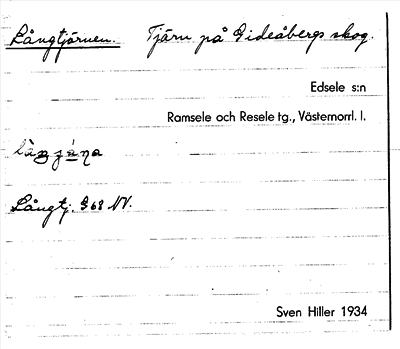 Långtjärnen. Tjärn på Gideåbergs skog.
Edsele s:n
Ramsele och Resele tg., Västernorrl. l.
Långtj. G68 NV.
Sven Hiller 1934